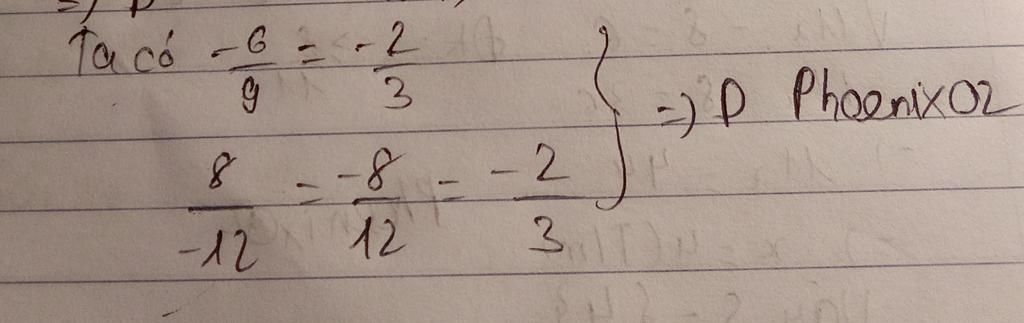 =) D
Ta có -6/9 = -2/3
8/-12 = -8/12 = -2/3
=) D PhoenixO2